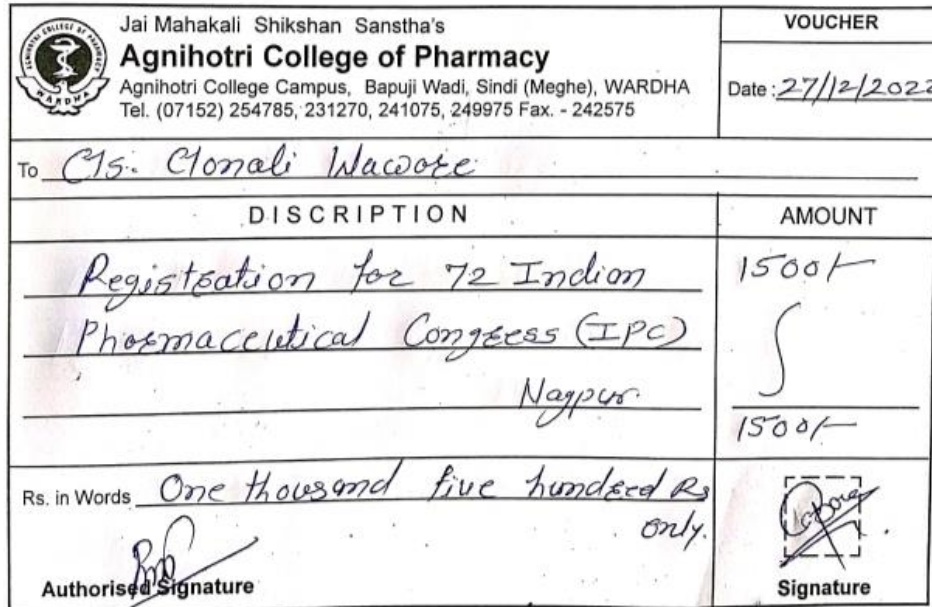 AGNIHOTRI COLLEGE OF PHARMACY
WARDHA
Jai Mahakali Shikshan Sanstha's
Agnihotri College of Pharmacy
Agnihotri College Campus, Bapuji Wadi, Sindi (Meghe), WARDHA
Tel. (07152) 254785, 231270, 241075, 249975 Fax. - 242575
VOUCHER
Date : 27/12/2022
To Ms. Monali Wawore
DISCRIPTION
AMOUNT
Registration for 72 Indian
1500/-
Pharmaceutical Congress (IPC)
Nagpur
1500/-
Rs. in Words One thousand five hundred Rs
only.
Authorised Signature
Signature